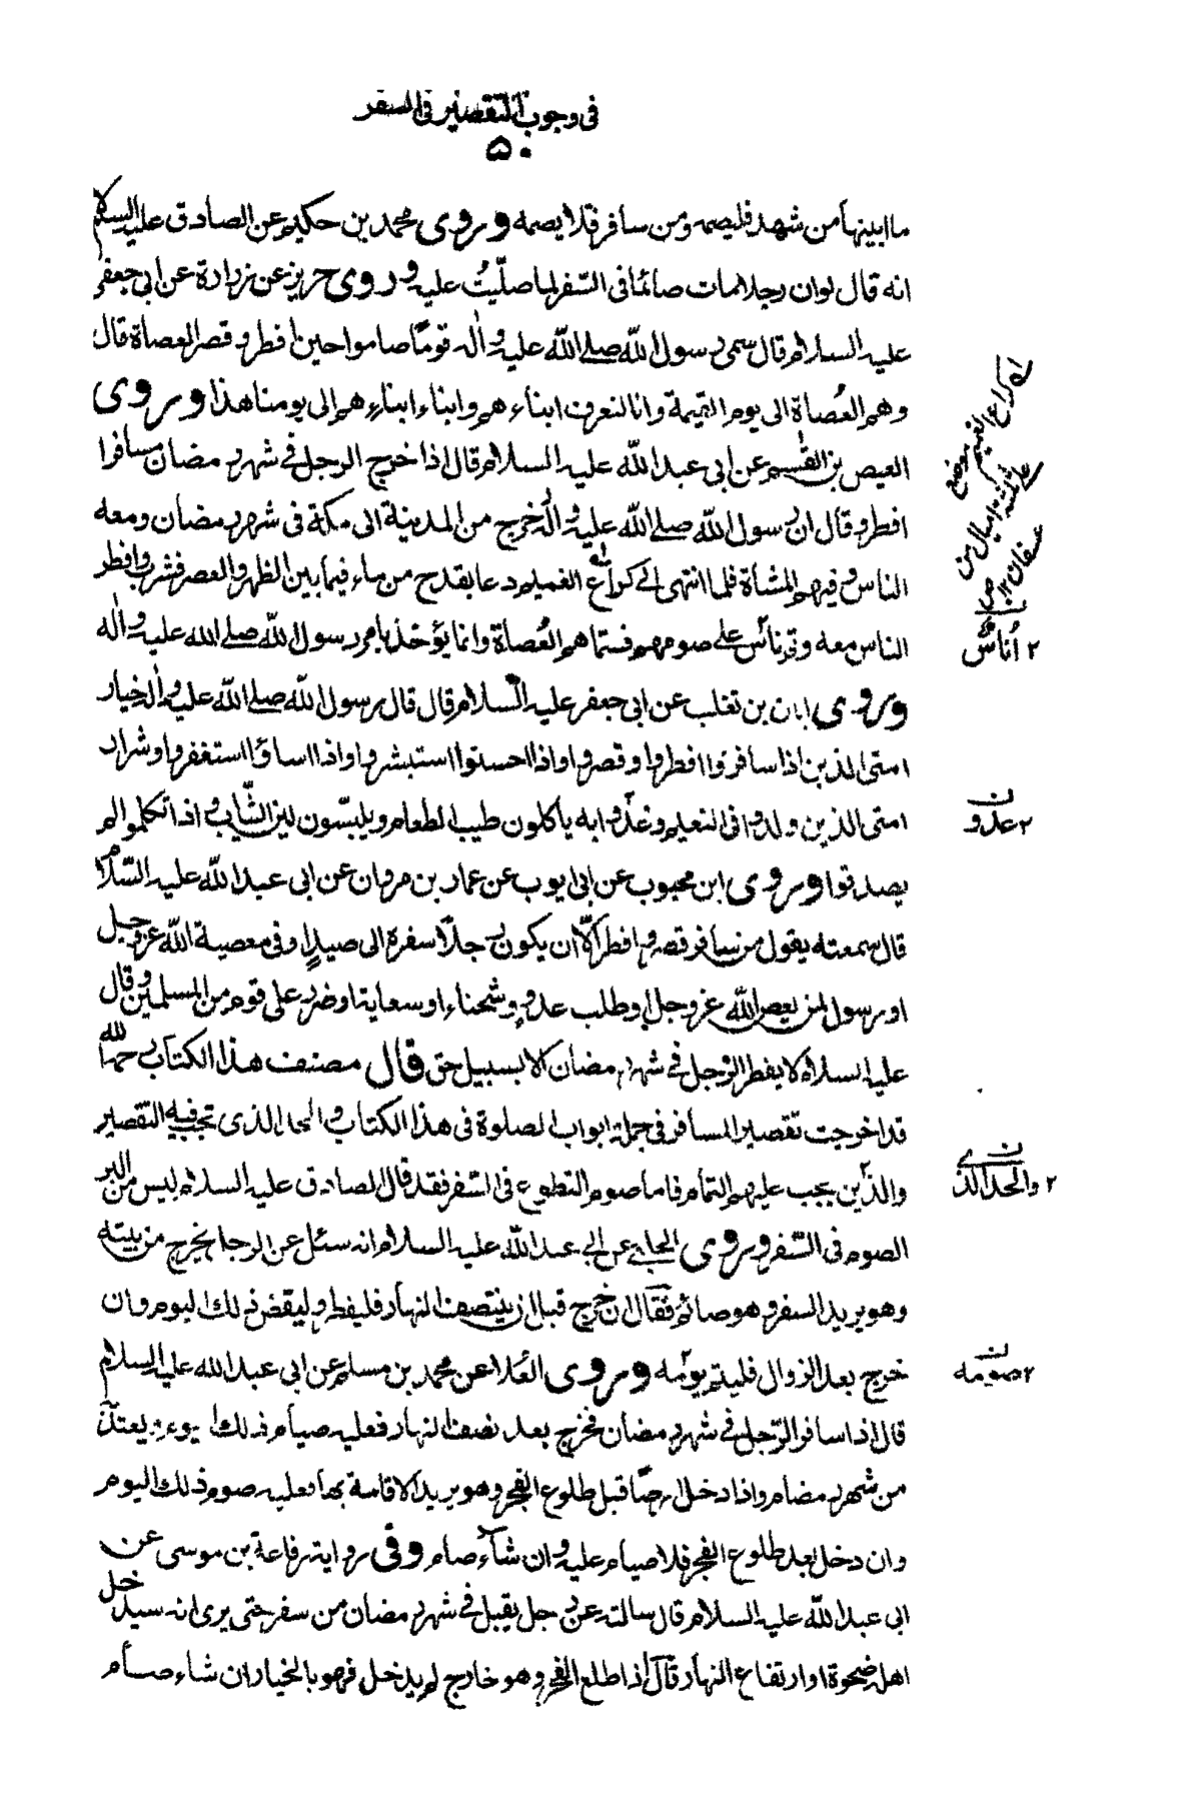 فی وجوب التقصیر فی السفر
۵۰
ما ابینها من شهد فلیصمه ومن سافر فلا یصمه وروی محمد بن حکیم عن الصادق علیه السلام
انه قال لو ان رجلا مات صائما فی السّفر لما صلّیتُ علیه وروی حریز عن زرارة عن ابی جعفر
علیه السلام قال سمی رسول اللّه صلے اللّه علیه واٰله قومًا صاموا حین افطر وقصر العصاة قال
وهم العُصاة الی یوم القیٰمة وانا لنعرف ابناءهم وابناء ابنائهم الی یومنا هذا وروی
العیص بن القٰسم عن ابی عبد اللّه علیه السلام قال اذا خرج الرجل فے شهر رمضان مسافرا
افطر وقال ان رسول اللّه صلے اللّه علیه واٰله خرج من المدینة الی مکة فی شهر رمضان ومعه
الناس وفیهم المشاة فلما انتهی الے کراع الغمیم دعا بقدح من ماء فیما بین الظهر والعصر فشرب وافطر
الناس معه وتم ناس علے صومهم فسماهم العُصاة وانما یؤخذ بامر رسول اللّه صلے الله علیه واٰله
وروی ابان بن تغلب عن ابی جعفر علیه السّلام قال قال رسول اللّه صلے اللّه علیه واٰله خیار
امتی الذین اذا سافروا افطروا وقصروا واذا احسنوا استبشروا واذا اساؤا استغفروا وشرار
امتی الذین ولدوا فی النعیم وغذوا به یاکلون طیب الطعام ویلبسّون لین الثیاب واذا تکلموا لم
یصدقوا وروی ابن محبوب عن ابی ایوب عن عمار بن مروان عن ابی عبد اللّه علیه السّلام
قال سمعته یقول من سافر قصر وافطر الّا ان یکون رجلا سفره الی صیدٍ او فی معصیة اللّه عز وجل
او رسول لمن یعص اللّه عز وجل او طلب عدوٍ وشحناء او سعایة او ضرر علی قوم من المسلمین وقال
علیه السلام لا یفطر الرجل فے شهر رمضان الا بسبیل حق قال مصنف هذا الکتاب رحمه الله
قد اخرجت تقصیر المسافر فی جملة ابواب الصلوة فی هذا الکتاب والحد الذی تجب فیه التقصیر
والذین یجب علیهم التمام فاما صوم التطوع فی السّفر فقد قال الصادق علیه السلام لیس من البر
الصوم فی السّفر وروی الحلبے عن ابی عبد اللّه علیه السلام انه سئل عن الرجل یخرج من بیته
وهو یرید السفر وهو صائم فقال ان خرج قبل ان ینتصف النهار فلیفطر ولیقض ذلک الیوم وان
خرج بعد الزوال فلیتم یومه وروی العَلا عن محمد بن مسلم عن ابی عبد الله علیه السلام
قال اذا سافر الرّجل فے شهر رمضان فخرج بعد نصف النهار فعلیه صیام ذلک الیوم ویعتدّ
من شهر رمضان واذا دخل ارضًا قبل طلوع الفجر وهو یرید الاقامة بها فعلیه صوم ذلک الیوم
وان دخل بعد طلوع الفجر فلا صیام علیه وان شاء صام وفی روایة رفاعة بن موسی عن
ابی عبد اللّه علیه السلام قال سالته عن رجل یقبل فے شهر رمضان من سفر حتی یری انه سیدخل
اهله ضحوة او ارتفاع النهار قال اذا طلع الفجر وهو خارج لم یدخل فهو بالخیار ان شاء صام
کراع الغمیم موضع
علی ثلثة امیال من
عسفان ۱۲ ص
۲ اُناسٌ
۲ عدوا
۲ والحد الذی
۲ صومه